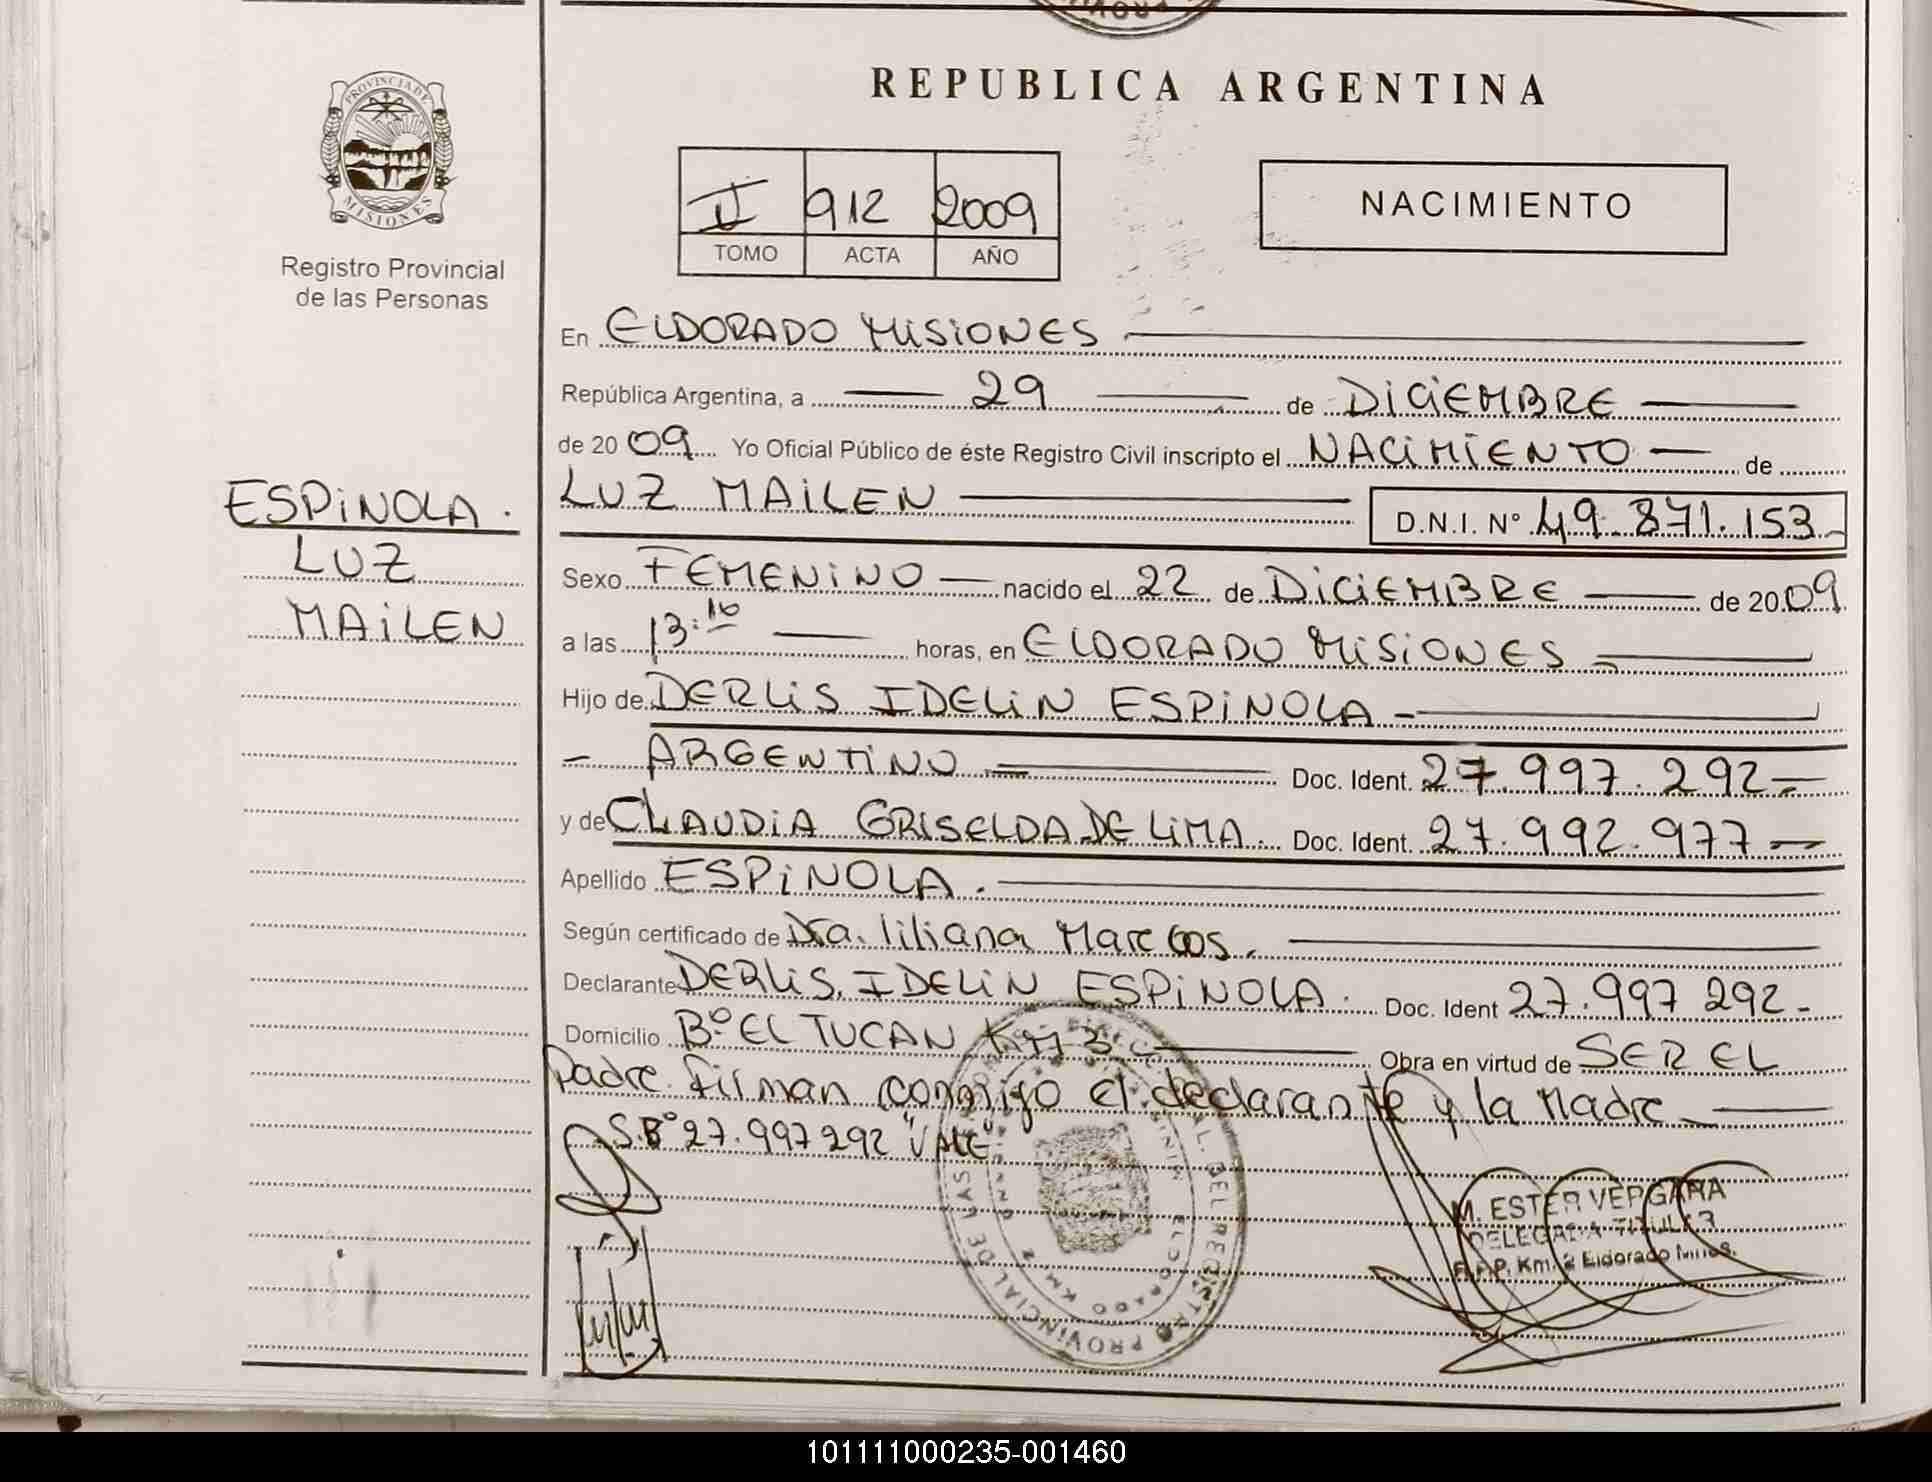 REPUBLICA ARGENTINA
PROVINCIA DE
MISIONES
Registro Provincial
de las Personas
II 912 2009
TOMO ACTA AÑO
NACIMIENTO
En ELDORADO MISIONES
República Argentina, a 29 de DICIEMBRE
de 2009 Yo Oficial Público de éste Registro Civil inscripto el NACIMIENTO de
LUZ MAILEN D.N.I. Nº 49.871.153
ESPINOLA.
LUZ
MAILEN
Sexo FEMENINO nacido el 22 de DICIEMBRE de 2009
a las 13:10 horas, en ELDORADO MISIONES
Hijo de DERLIS IDELIN ESPINOLA
ARGENTINO Doc. Ident. 27.997.292
y de CLAUDIA GRISELDA DE LIMA. Doc. Ident. 27.992.977
Apellido ESPINOLA.
Según certificado de Dra. liliana Marcos.
Declarante DERLIS IDELIN ESPINOLA. Doc. Ident 27.997 292
Domicilio Bº EL TUCAN Km 3 Obra en virtud de SER EL
Padre. firman conmigo el declarante y la Madre
S.Bº 27.997292 "VALE"
M. ESTER VERGARA
DELEGADA TITULAR
R.P.P. Km. 2 Eldorado Mnes.
101111000235-001460